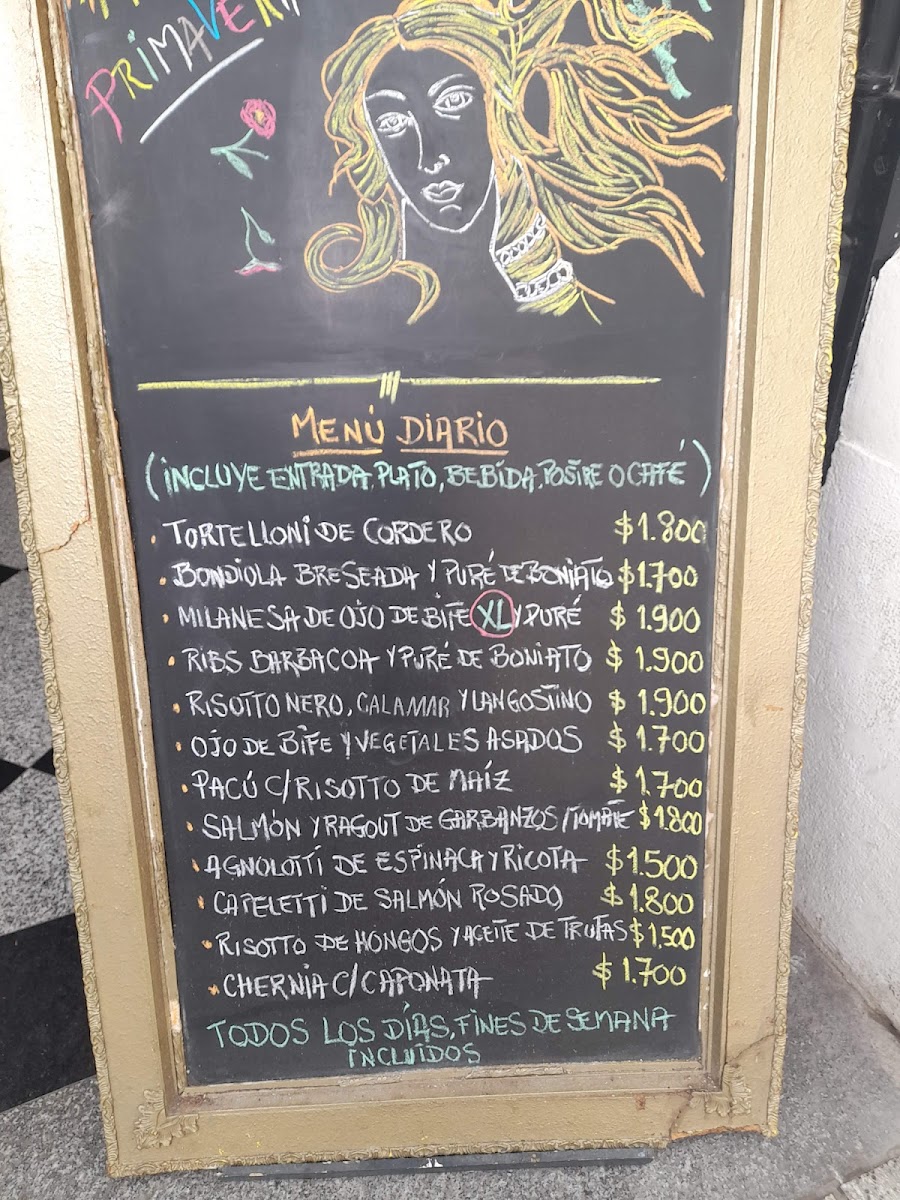 PRIMAVERA
MENÚ DIARIO
(INCLUYE ENTRADA, PLATO, BEBIDA, POSTRE O CAFÉ)
· TORTELLONI DE CORDERO $1.800
· BONDIOLA BRESEADA Y PURÉ DE BONIATO $1.700
· MILANESA DE OJO DE BIFE XL Y PURÉ $1.900
· RIBS BARBACOA Y PURÉ DE BONIATO $1.900
· RISOTTO NERO, CALAMAR Y LANGOSTINO $1.900
· OJO DE BIFE Y VEGETALES ASADOS $1.700
· PACÚ C/RISOTTO DE MAÍZ $1.700
· SALMÓN Y RAGOUT DE GARBANZOS/TOMATE $1.800
· AGNOLOTTÍ DE ESPINACA Y RICOTA $1.500
· CAPELETTI DE SALMÓN ROSADO $1.800
· RISOTTO DE HONGOS Y ACEITE DE TRUFAS $1.500
· CHERNIA C/CAPONATA $1.700
TODOS LOS DÍAS, FINES DE SEMANA
INCLUÍDOS